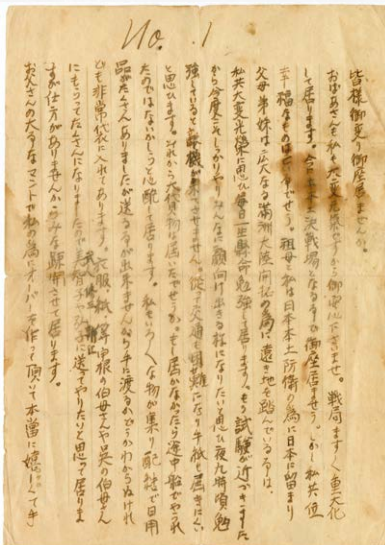 No. 1
皆様御変り御座居ませんか。
おばあさんも私も大変元気ですから御安心下さいませ。戦局ますます重大化
して居ります。今に日本も決戦場となる事で御座居ませう。しかし私共位
幸福なものはないでせう。祖母と私は日本本土防衛の為に日本に留まり
父母弟妹は広大なる満洲大陸開拓の為に遠き地を踏んでゐるのは、
私共大変光栄に思ひ毎日一生懸命勉強して居ります。もう試験が近づきました
から今度こそしっかりやりみんなに顔向け出来る様になりたいと思ひ夜九時頃勉
強してゐると敵機が来てさせません。従て交通も困難になり手紙も届きにくい
と思ひます。それから大代貨物は届いたでせうか。もし届かなかったら途中敵でやられ
たのではないかしらと心配して居ります。私もいろいろな物が集り配給で日用
品がたくさんありましたが送る事が出来ませんから手に渡るかどうかわからぬけれ
ども非常袋に入れてあります。衣服、紙、 中根の伯母さんや呉の伯母さん
にもらってたくさんになりましたので 智子や弘子に送ってやりたいと思って居りま
すが仕方がありませんからみな疎開させて居ります。
お父さんの大事なマントで私の為にオーバーを作って頂いて本当に嬉しくて